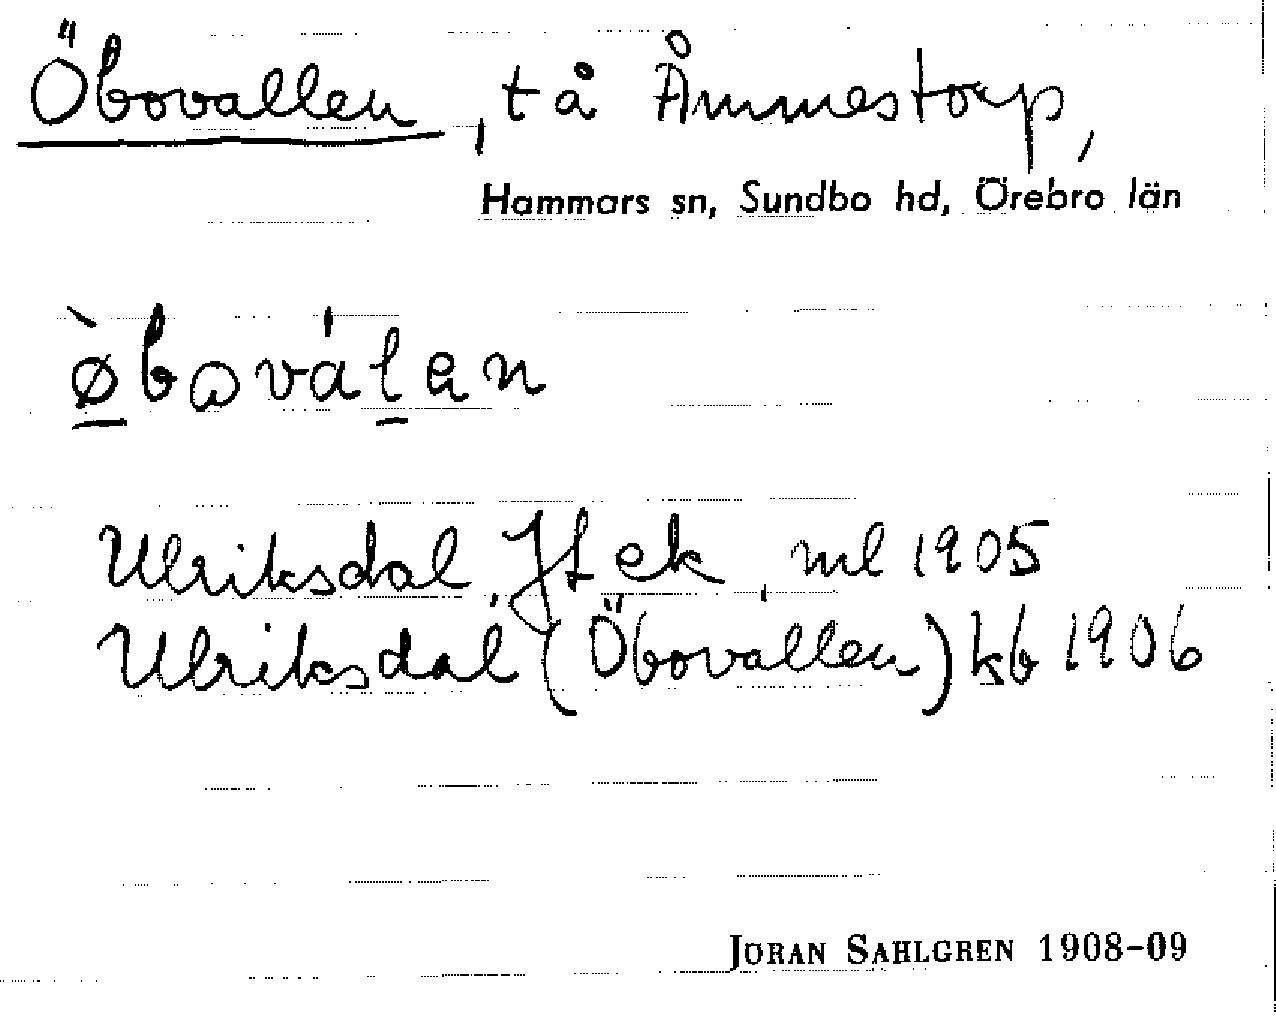 Öbovallen, tå Åmmestorp,
Hammars sn, Sundbo hd, Örebro län
Ulriksdal Jfek ml 1905
Ulriksdal (Öbovallen) kb 1906
JORAN SAHLGREN 1908-09